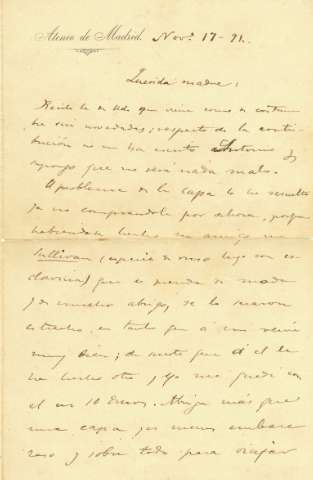 Ateneo de Madrid. Nov.e 17-91.
Querida madre:
Recibí la de Vd que vino como de costumbre
sin novedades; respecto de la contri-
bución no me ha escrito Antonio y
supongo que no será nada malo.
El problema de la capa lo he resuelto
ya no comprándola por ahora, porque
habiéndose hecho un amigo un
Sullivan (especie de ruso largo con es-
clavina) que es prenda de moda
y de mucho abrigo, se lo sacaron
estrecho, en tanto que a mi venía
muy bien; de suerte que él se
ha hecho otro, y yo me quedé con
el en 10 duros. Abriga más que
una capa y es menos embara-
zoso y sobre todo para viajar